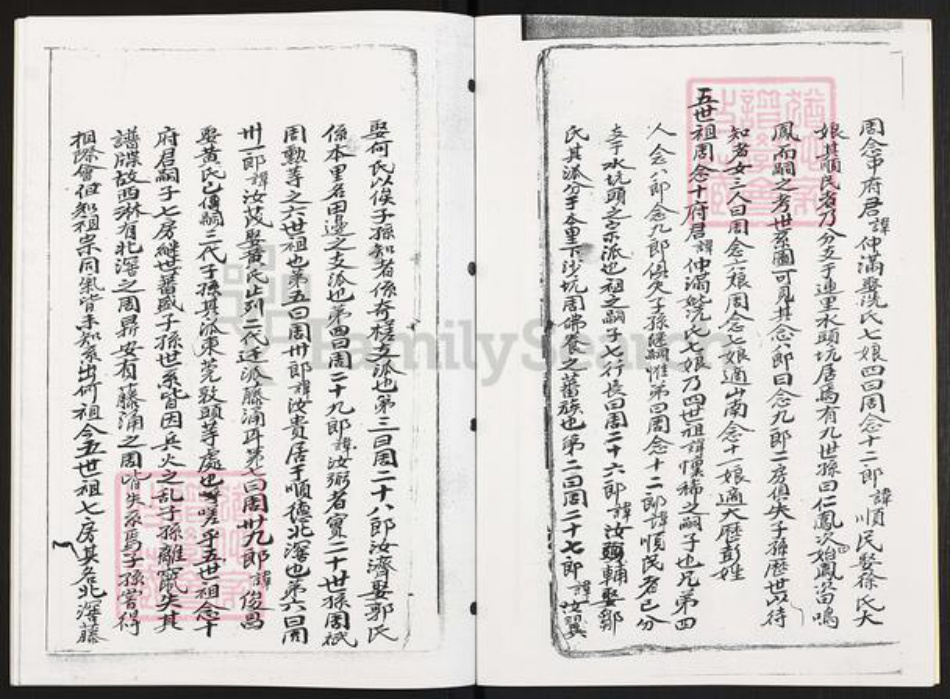 周念中府君諱仲滿娶冼氏七娘四曰周念十二郎諱順民娶徐氏大
娘其順民者乃分支于通里水頭坑居焉有九世孫曰仁鳳次始鳳次曰鳴
鳳而嗣之考世系圖可見其念八郎曰念九郎二房俱失子孫歷世以待
知者女三人曰周念二娘周念七娘適山南念十一娘適大歷彭姓
五世祖周念十府君諱仲滿妣冼氏七娘乃四世祖諱懷稀之嗣子也兄弟四
人念八郎念九郎俱失子孫繼嗣惟第四周念十二郎諱順民者已分
支于水坑頭之宗派也祖之嗣子七行長曰周二十六郎諱汝輔娶鄒
氏其派分于本里下沙坑周佛養之蕃族也第二曰周二十七郎諱汝翼
娶何氏以俟子孫知者係奇槎支派也第三曰周二十八郎汝濟娶郭氏
係本里名田邊之支派也第四曰周二十九郎諱汝弼者實二十世孫周祇
周勳等之六世祖也第五曰周卅郎諱汝貴居于順德北滘也第六曰周
卅一郎諱汝茂娶黃氏止列二代迁派藤涌耳第七曰周卅九郎諱俊昌
娶黃氏已傳嗣三代子孫其派東莞敦頭等處也呼嗟乎五世祖念十
府君嗣子七房継世蕃盛子孫世系皆因兵火之乱子孫離竄失其
譜牒故西淋有北滘之周鼎安有藤涌之周皆失系焉子孫嘗得
相際會但知祖宗同氣皆未知系出何祖今五世祖七房其名北滘藤
FamilySearch